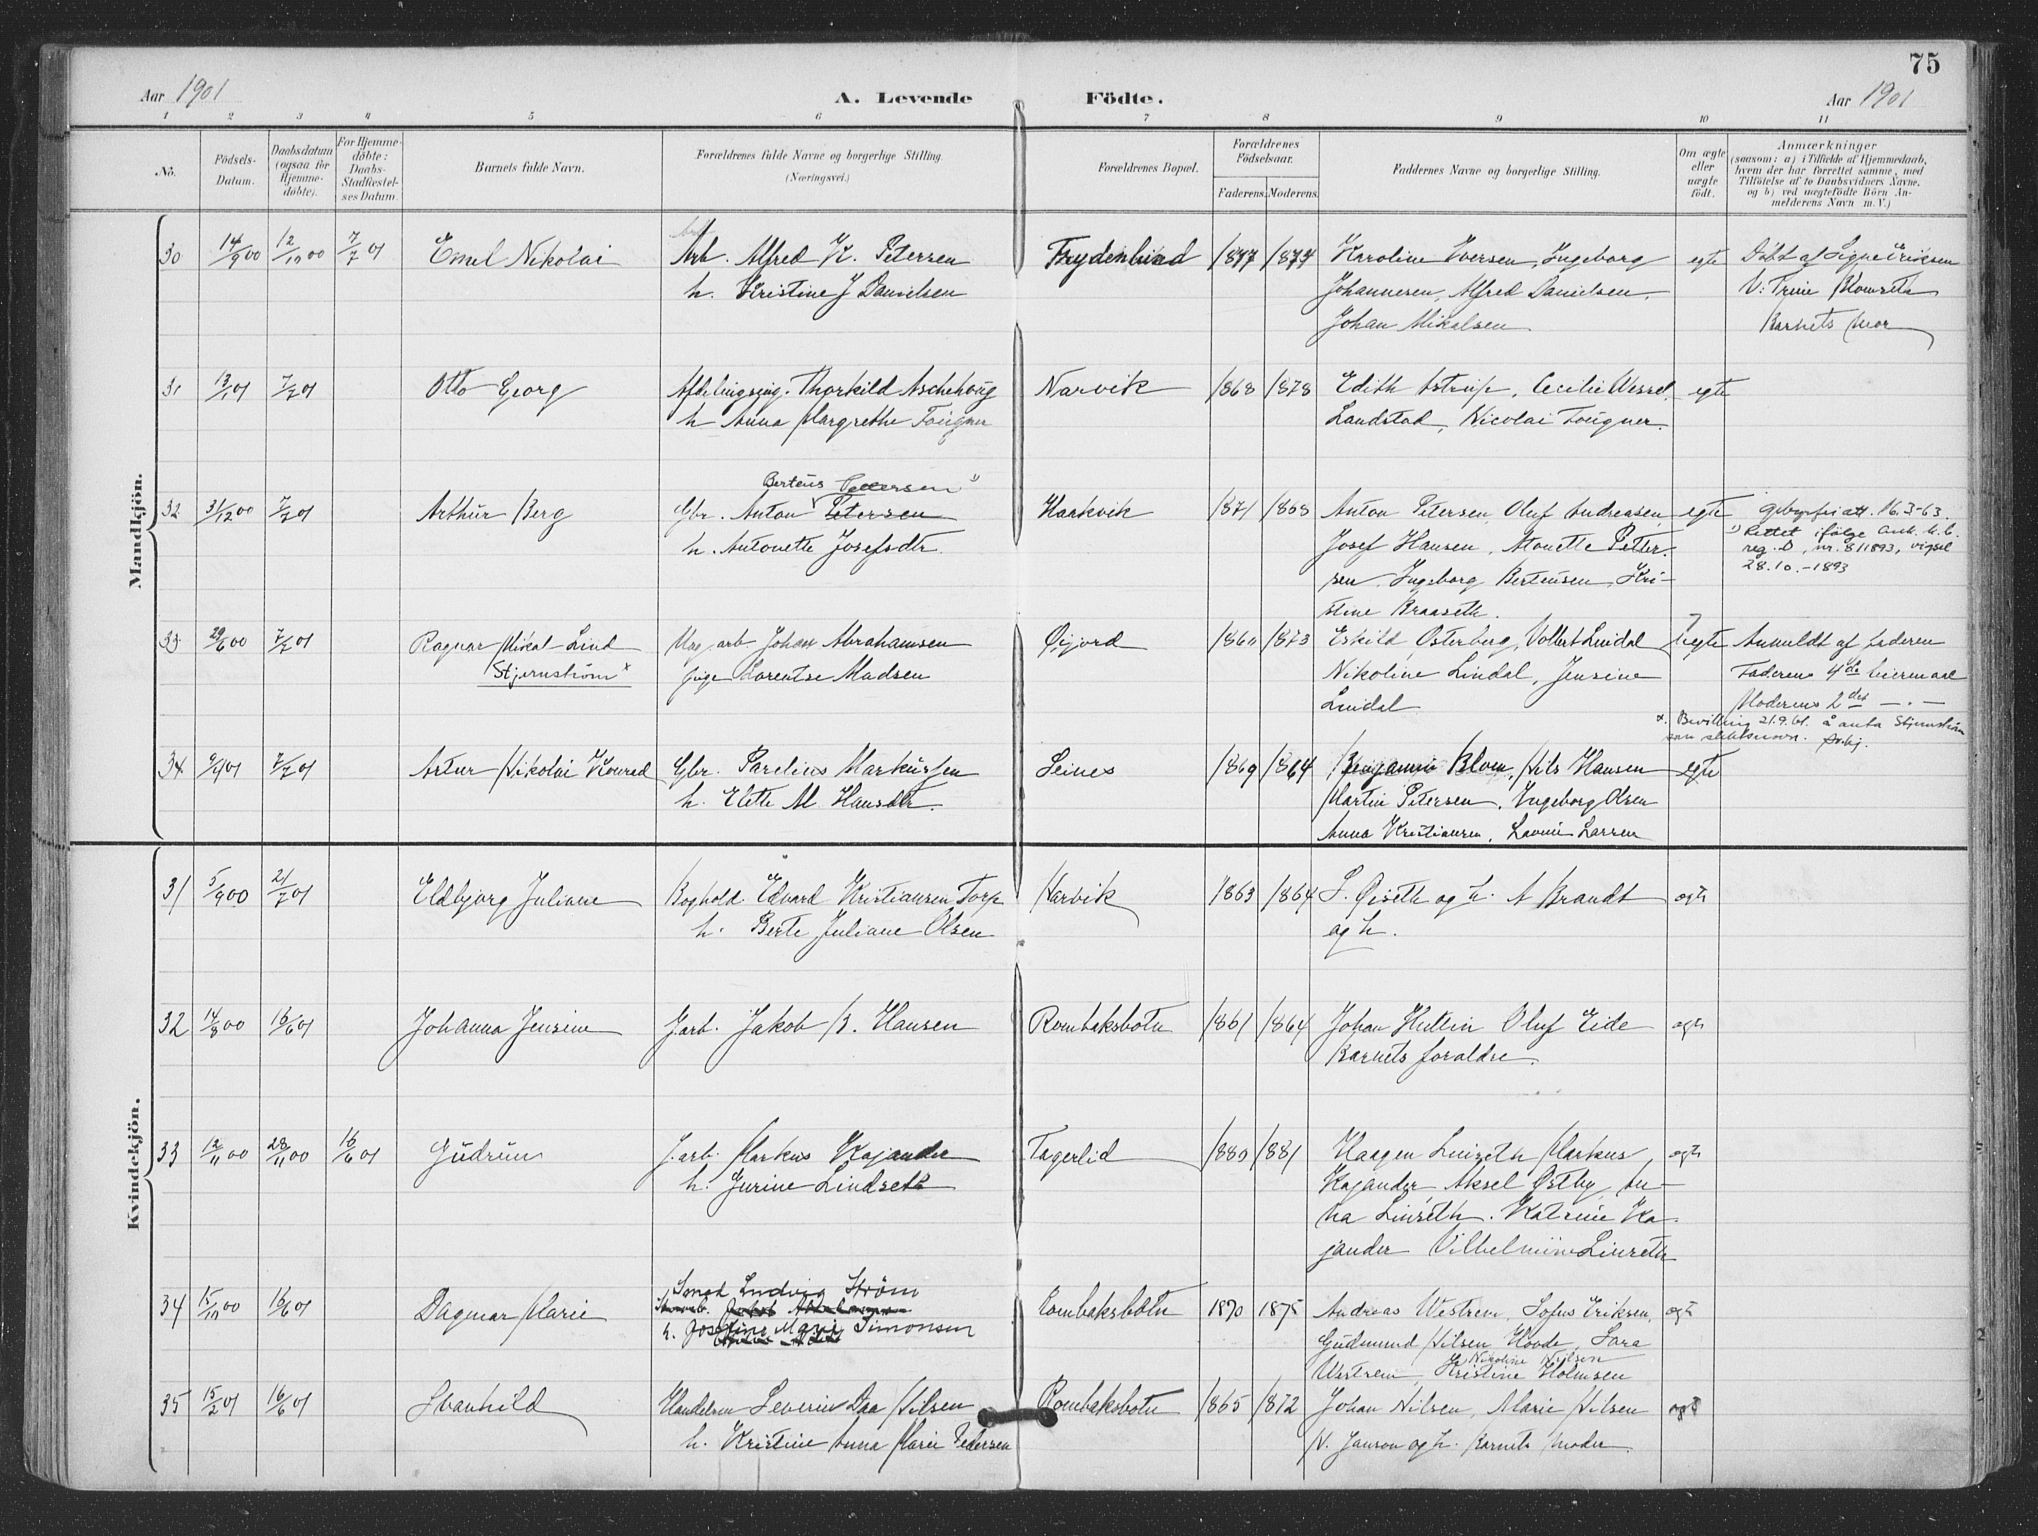 75
Aar 1901 A. Levende Födte. Aar 1901
1 2 3 4 5 6 7 8 9 10 11
No. Födsels-Datum. Daabsdatum (ogsaa for Hjemme-döbte). For Hjemme-döbte: Daabs-Stadfæstel-ses Datum. Barnets fulde Navn. Forældrenes fulde Navne og borgerlige Stilling. (Næringsvei.) Forældrenes Bopæl. Forældrenes Födselsaar. Faderens. Moderens. Faddernes Navne og borgerlige Stilling. Om ægte eller uægte födt. Anmærkninger (saasom: a) i Tilfælde af Hjemmedaab, hvem der har forrettet samme, med Tilföielse af to Daabsvidners Navne, og b) ved uægtefödte Börn An-melderens Navn m. V.)
Mandkjön.
30 14/9 00 12/10 00 7/7 01 Emil Nikolai Arb. Alfred K. Petersen Frydenlund 1877 1877 Karoline Iversen, Ingeborg egte Döbt af Signe Eriksen
h. Kristine J Danielsen Johannesen, Alfred Danielsen, V: Trine
Johan Mikalsen Barnets mor
31 13/1 01 7/7 01 Otto Georg Afdelingsing. Thorkild Aschehoug Narvik 1868 1878 Edith Astrup, Cecilie Wessel, egte
h Anna Margrethe Fougner Landstad, Nicolai Fougner.
Berteus Petersen 1)
32 31/12 00 7/7 01 Arthur Berg Gbr. Anton Petersen Hankvik 1871 1868 Anton Petersen, Oluf Andreasen egte att. 16.3-63.
h. Antonette Josefsdtr. Josef Hansen, Petter- 1) Rettet ifölge
sen, Ingeborg Berteusen, Kri- reg. D, nr. 8/1893, vigsel
stine Braaseth. 28.10.-1893
33 29/6 00 7/7 01 Ragnar Mikal Lind arb Johan Abrahamsen Öijord 1860 1873 Eskild Osterberg, Volbert Lindal Uegte Anmeldt af faderen
Stjernström x Pige Lorentse Madsen Nikoline Lindal, Jensine Faderens 4de leiermaal
Lindal Moderens 2det — . —
x. Bevilling 21.9.61. å anta Stjernström
som slektsnavn.
34 01 7/7 01 Artur Nikolai Konrad Gbr. Parelius Markussen Leines 1869 1864 Benjamin Blom, Nils Hansen egte
h. Elette M. Hansdtr. Martin Petersen, Ingeborg Olsen
Anna Kristiansen, Larsen
Kvindekjön.
31 5/9 00 21/7 01 Eldbjörg Juliane Boghold. Edvard Kristiansen Torp Narvik 1863 1864 L. Öiseth og h. A Brandt ægte
h. Berte Juliane Olsen og h.
32 14/8 00 16/6 01 Johanna Jensine J.arb. Jakob B. Hansen Rombaksbotn 1861 1864 Johan Hultin Oluf Eide ægte
Barnets foraldre
33 12/11 00 28/11 00 16/6 01 Gudrun J.arb. Markus Kajander Tagerlid 1880 1881 Haagen Linseth Markus ægte
h. Jurine Lindseth Kajander, Aksel Östby, An-
na Linseth. Katrine Ka-
jander Vilhelmine Linseth
Ludvig Ström
34 15/10 00 16/6 01 Dagmar Marie Rombaksbotn 1870 1875 Andreas Westrem, Sofus Eriksen, ægte
h. Josefine Marie Simonsen Gudmund Nilsen Hovde, Sara
Nikoline Nilsen
Westrem, Kristine Holmsen
35 15/2 01 16/6 01 Svanhild Handelsm Severin Daa Nilsen Rombaksbotn 1865 1872 Johan Nilsen, Marie Nilsen ægte
h. Kristine Anna Marie Pedersen N. Janson og h. Barnets Moder.